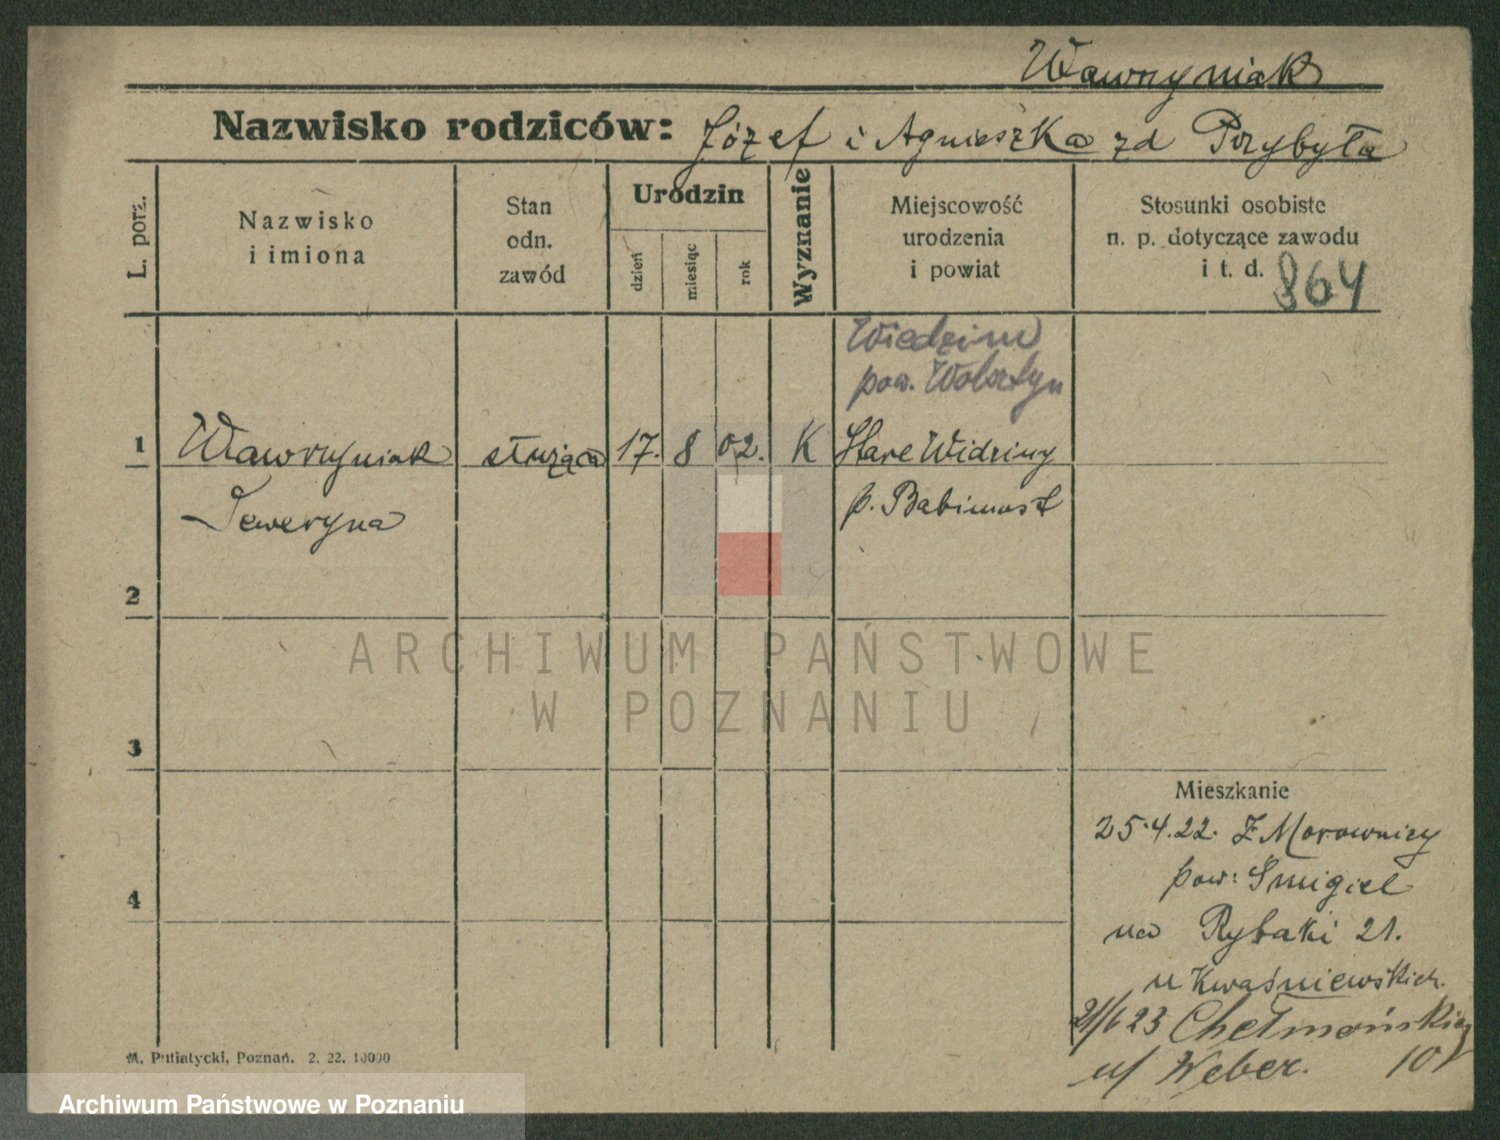 Wawrzyniak
Nazwisko rodziców: Józef i Agnieszka zd Przybyła
L. porz.
Nazwisko
i imiona
Stan
odn.
zawód
Urodzin
dzień
miesiąc
rok
Wyznanie
Miejscowość
urodzenia
i powiat
Stosunki osobiste
n. p. dotyczące zawodu
i t. d. 864
pow. Wolsztyn
1 Wawrzyniak służąca 17. 8 02. K Stare Widzimy
Seweryna p. Babimost
2
3
4
ARCHIWUM PAŃSTWOWE
W POZNANIU
Mieszkanie
25.4.22. Z Morownicy
pow: Śmigiel
na Rybaki 21.
u Kwaśniewskich.
21/6 23 Chełmońskiego
u/ Weber. 10
M. Putiatycki, Poznań. 2. 22. 10000
Archiwum Państwowe w Poznaniu